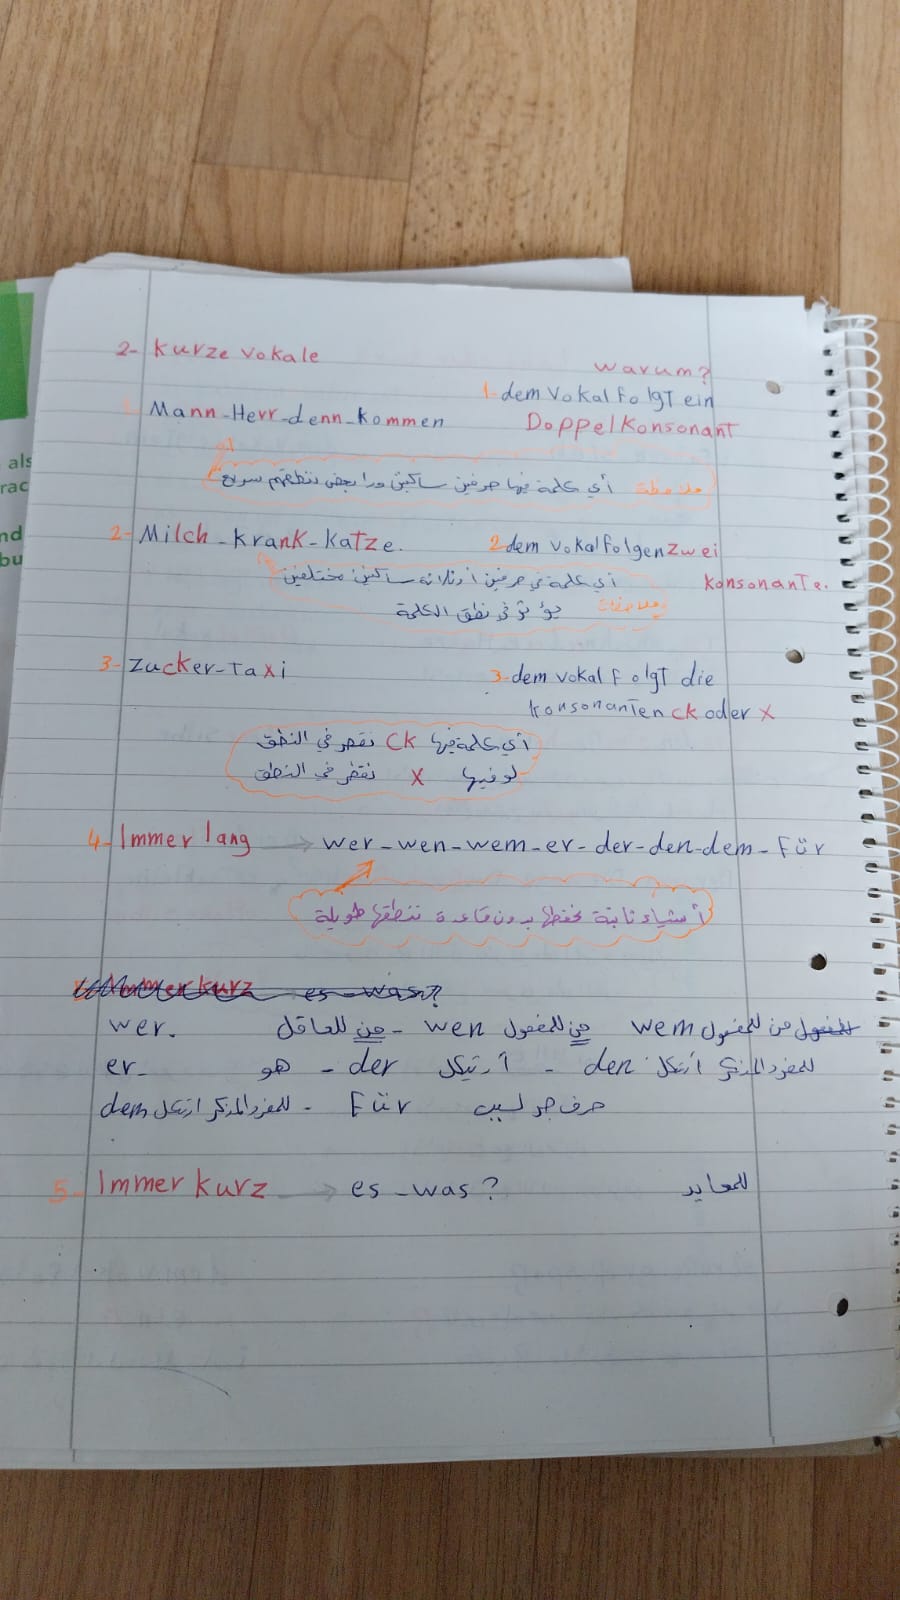 2- Kurze Vokale
Warum?
1- Mann-Herr-denn-kommen
1- dem Vokal folgt ein
Doppelkonsonant
ملاحظة أي كلمة فيها حرفين ساكنين ورا بعض ننطقهم سريع
2- Milch-Krank-Katze.
2 dem Vokal folgen zwei
Konsonante.
أي كلمة في حرفين أو ثلاثة ساكنين مختلفين
ملاحظات يؤثر في نطق الكلمة
3- Zucker-Taxi
3- dem Vokal folgt die
Konsonanten ck oder x
أي كلمة فيها CK نقصر في النطق
لو فيها X نقصر في النطق
4- Immer lang → wer-wen-wem-er-der-den-dem-Für
أشياء ثابتة نحفظها بدون قاعدة ننطقها طويلة
Immer kurz es-was?
wer. من للعاقل - wen من للمفعول wem من للمفعول
er- هو - der أرتيكل - den للمفرد المذكر أرتكل
dem للمفرد المذكر ارتكل - Für حرف جر لسبب
5- Immer kurz → es-was? للمحايد
als
rac
nd
bu